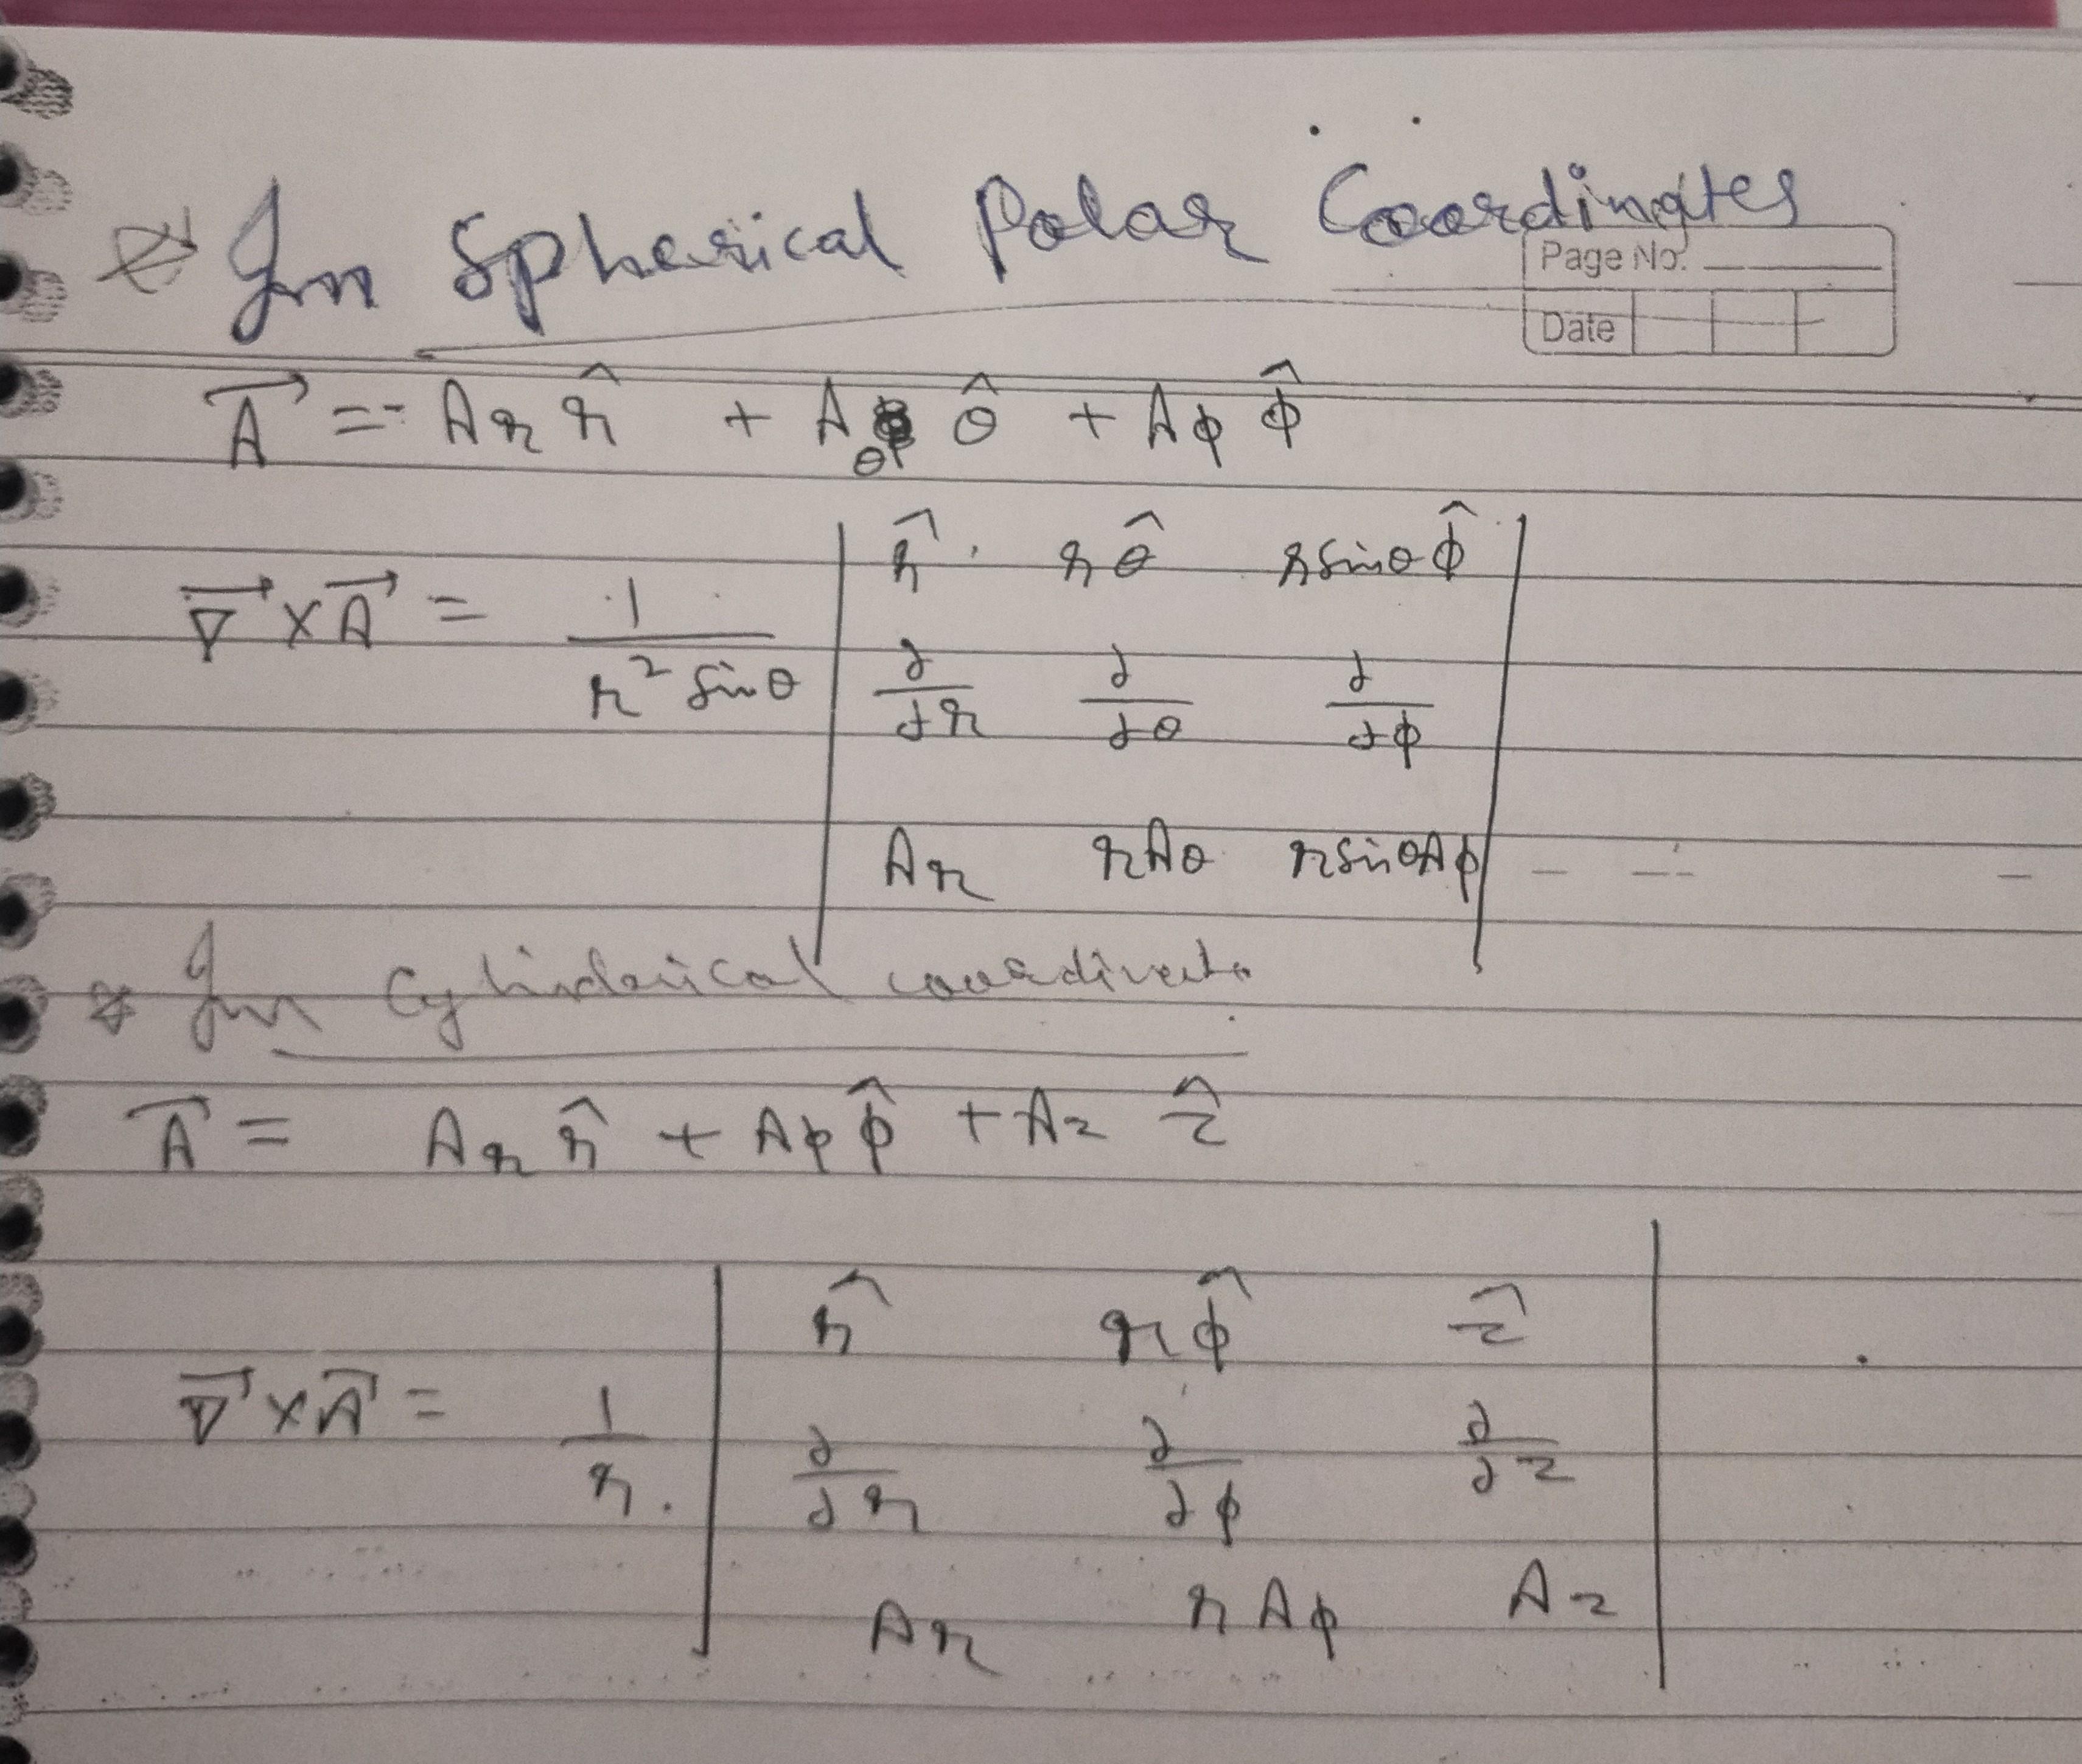 * In Spherical Polar Coordinates
Page No.
Date
A⃗ = Ar r̂ + Aθ θ̂ + Aϕ ϕ̂
∇⃗ × A⃗ = 1/(r² sinθ) | r̂ rθ̂ r sinθ ϕ̂ |
| ∂/∂r ∂/∂θ ∂/∂ϕ |
| Ar rAθ r sinθ Aϕ |
* In Cylindrical coordinate
A⃗ = Ar r̂ + Aϕ ϕ̂ + Az ẑ
∇⃗ × A⃗ = 1/r | r̂ rϕ̂ ẑ |
| ∂/∂r ∂/∂ϕ ∂/∂z |
| Ar rAϕ Az |